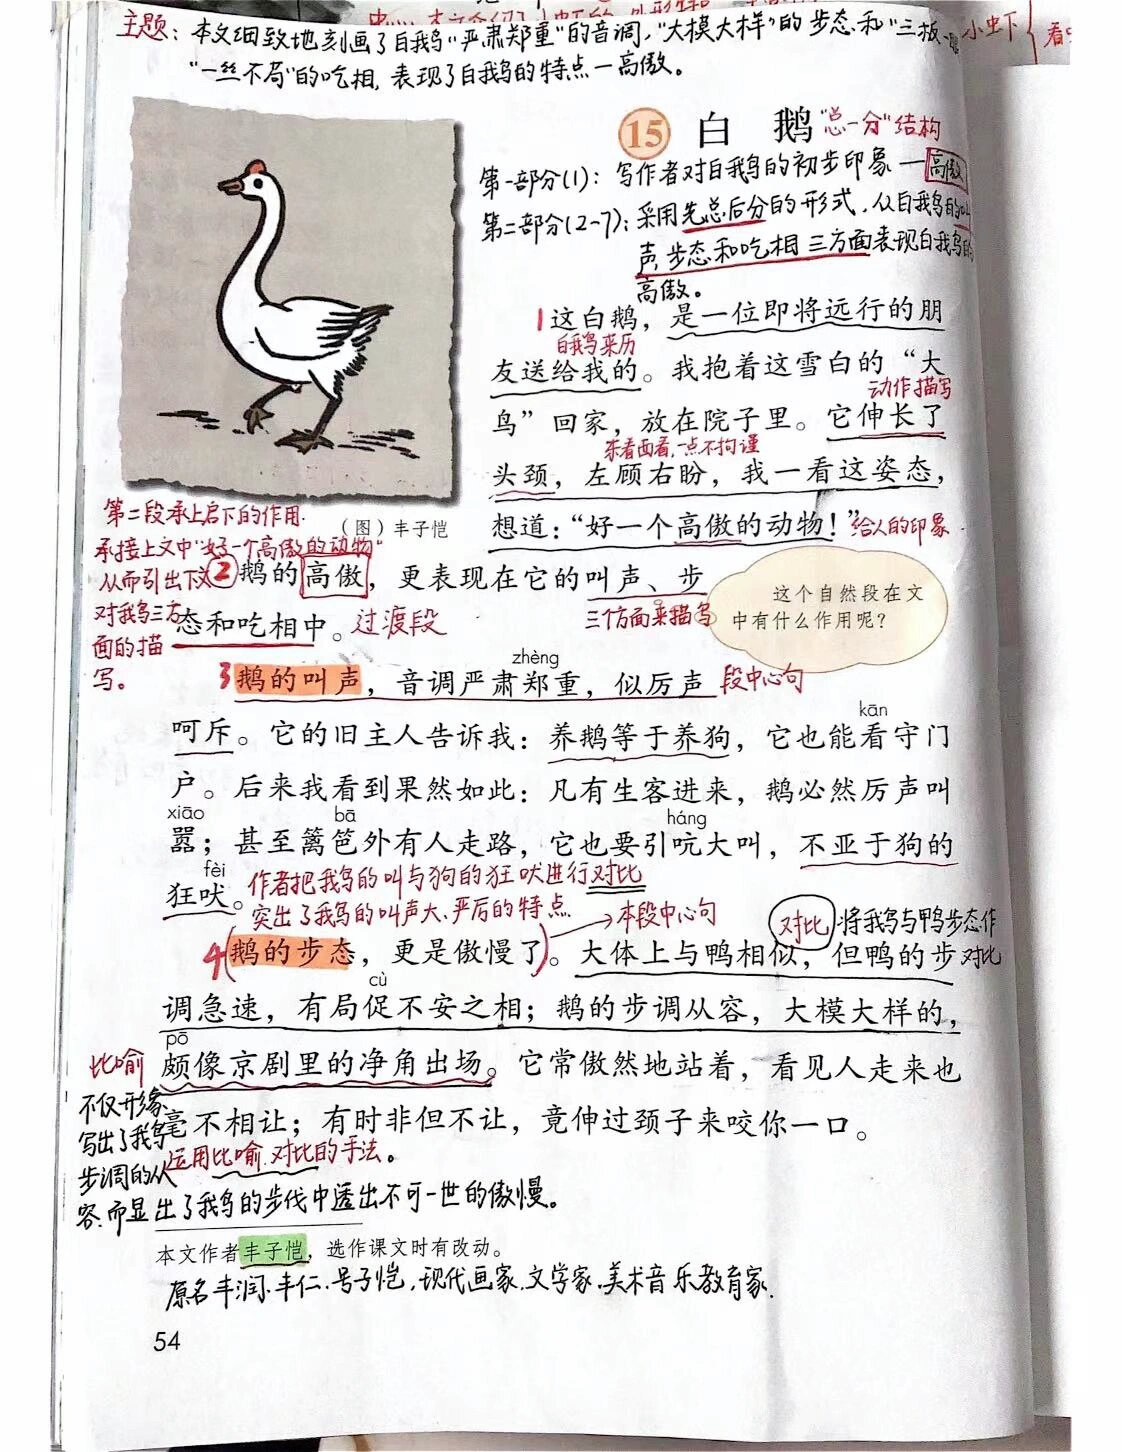 主题：本文细致地刻画了白鹅“严肃郑重”的音调，“大模大样”的步态和“三板一眼
小虫下
“一丝不苟”的吃相，表现了白鹅的特点一高傲。
15 白鹅
“总一分”结构
第一部分(1)：写作者对白鹅的初步印象一高傲
第二部分(2-7)：采用先总后分的形式，从白鹅的叫
声、步态和吃相三方面表现白鹅的
高傲。
1 这白鹅，是一位即将远行的朋
白鹅来历
友送给我的。我抱着这雪白的“大
动作描写
鸟”回家，放在院子里。它伸长了
东看西看，一点不拘谨
头颈，左顾右盼，我一看这姿态，
想道：“好一个高傲的动物！”
给人的印象
（图）丰子恺
第二段承上启下的作用.
承接上文中“好一个高傲的动物”
从而引出下文
对我鸟三方
面的描
写。
2 鹅的高傲，更表现在它的叫声、步
三个方面来描写
态和吃相中。
过渡段
这个自然段在文
中有什么作用呢？
zhèng
3 鹅的叫声，音调严肃郑重，似厉声
段中心句
kān
呵斥。它的旧主人告诉我：养鹅等于养狗，它也能看守门
户。后来我看到果然如此：凡有生客进来，鹅必然厉声叫
xiāo bā háng
嚣；甚至篱笆外有人走路，它也要引吭大叫，不亚于狗的
fèi
狂吠。
作者把鹅的叫与狗的狂吠进行对比
突出了鹅的叫声大、严厉的特点
→本段中心句
对比
将鹅与鸭步态作
对比
4(鹅的步态，更是傲慢了)。大体上与鸭相似，但鸭的步
cù
调急速，有局促不安之相；鹅的步调从容，大模大样的，
pō
颇像京剧里的净角出场。它常傲然地站着，看见人走来也
毫不相让；有时非但不让，竟伸过颈子来咬你一口。
比喻
不仅形象
写出了鹅
步调的从
容，而显出了鹅的步伐中透出不可一世的傲慢。
运用比喻、对比的手法。
本文作者丰子恺，选作课文时有改动。
原名丰润、丰仁.号子恺，现代画家、文学家、美术音乐教育家.
54